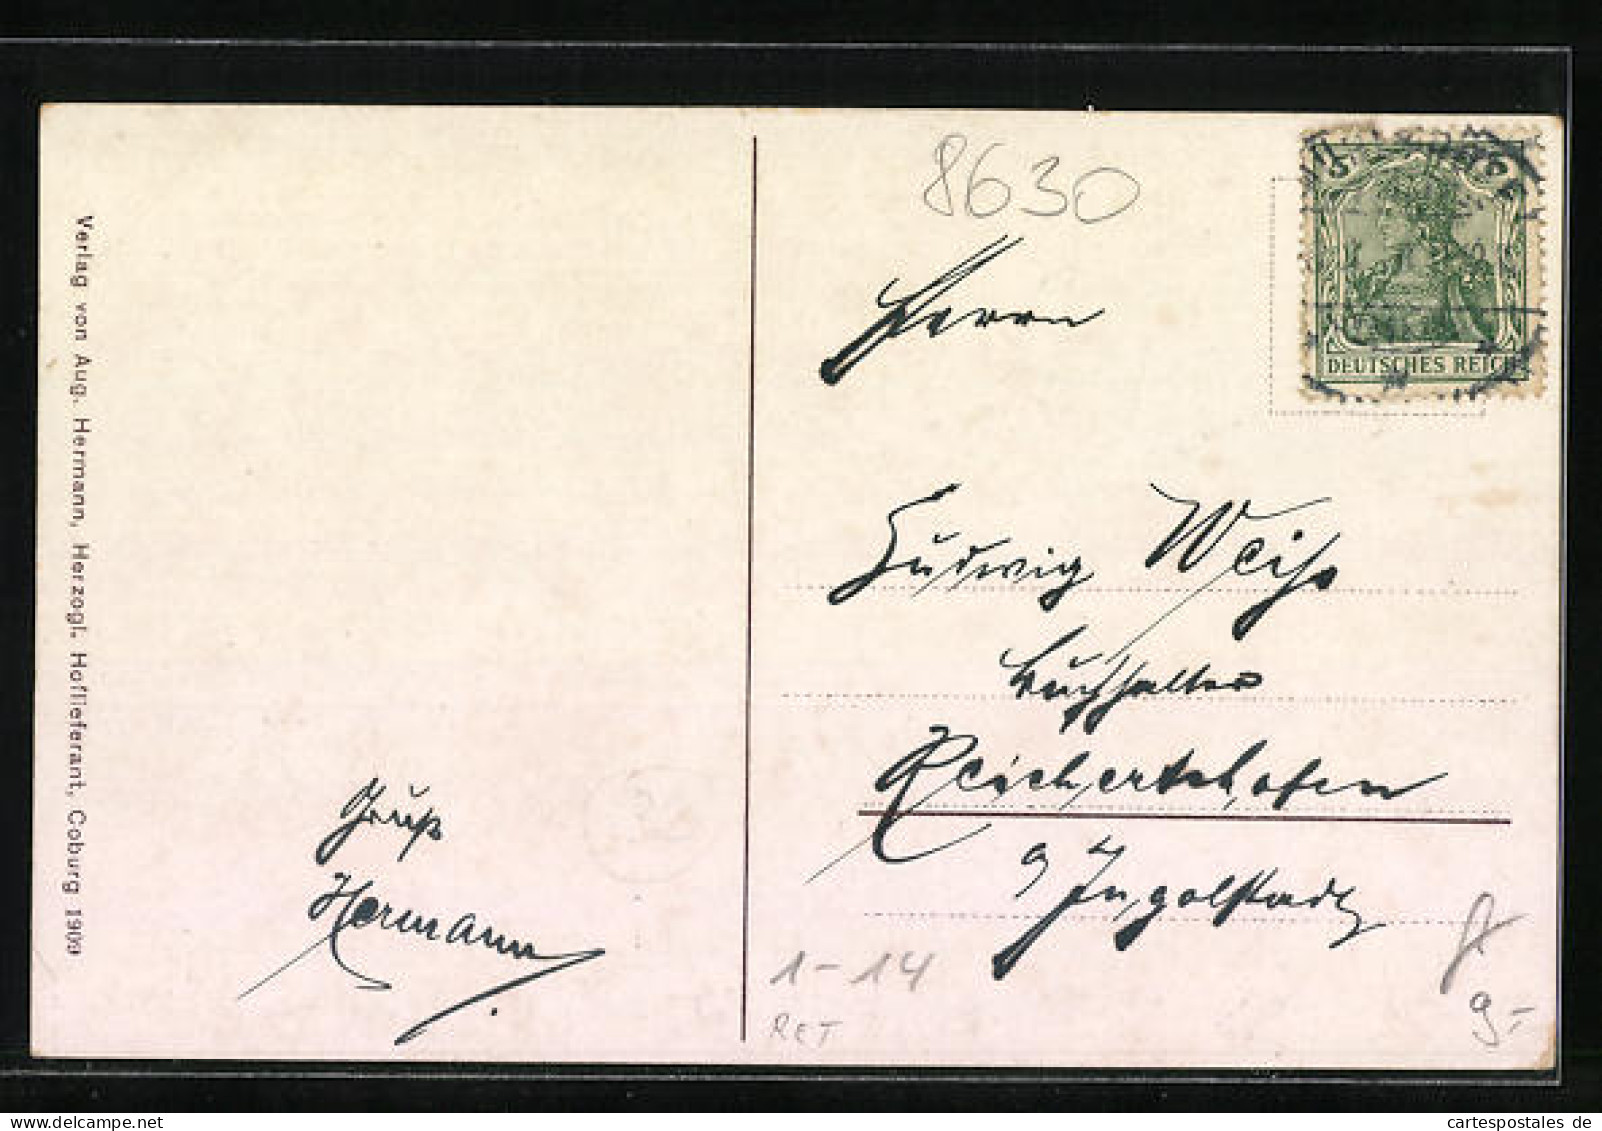 Verlag von Aug. Hermann, Herzogl. Hoflieferant, Coburg 1909
Gruß
Hermann
8630
DEUTSCHES REICH
Herrn
Ludwig Weiß
Buchhalter
Reichertshofen
Ingolstadt
1-14
RET
9,-
cartespostales de